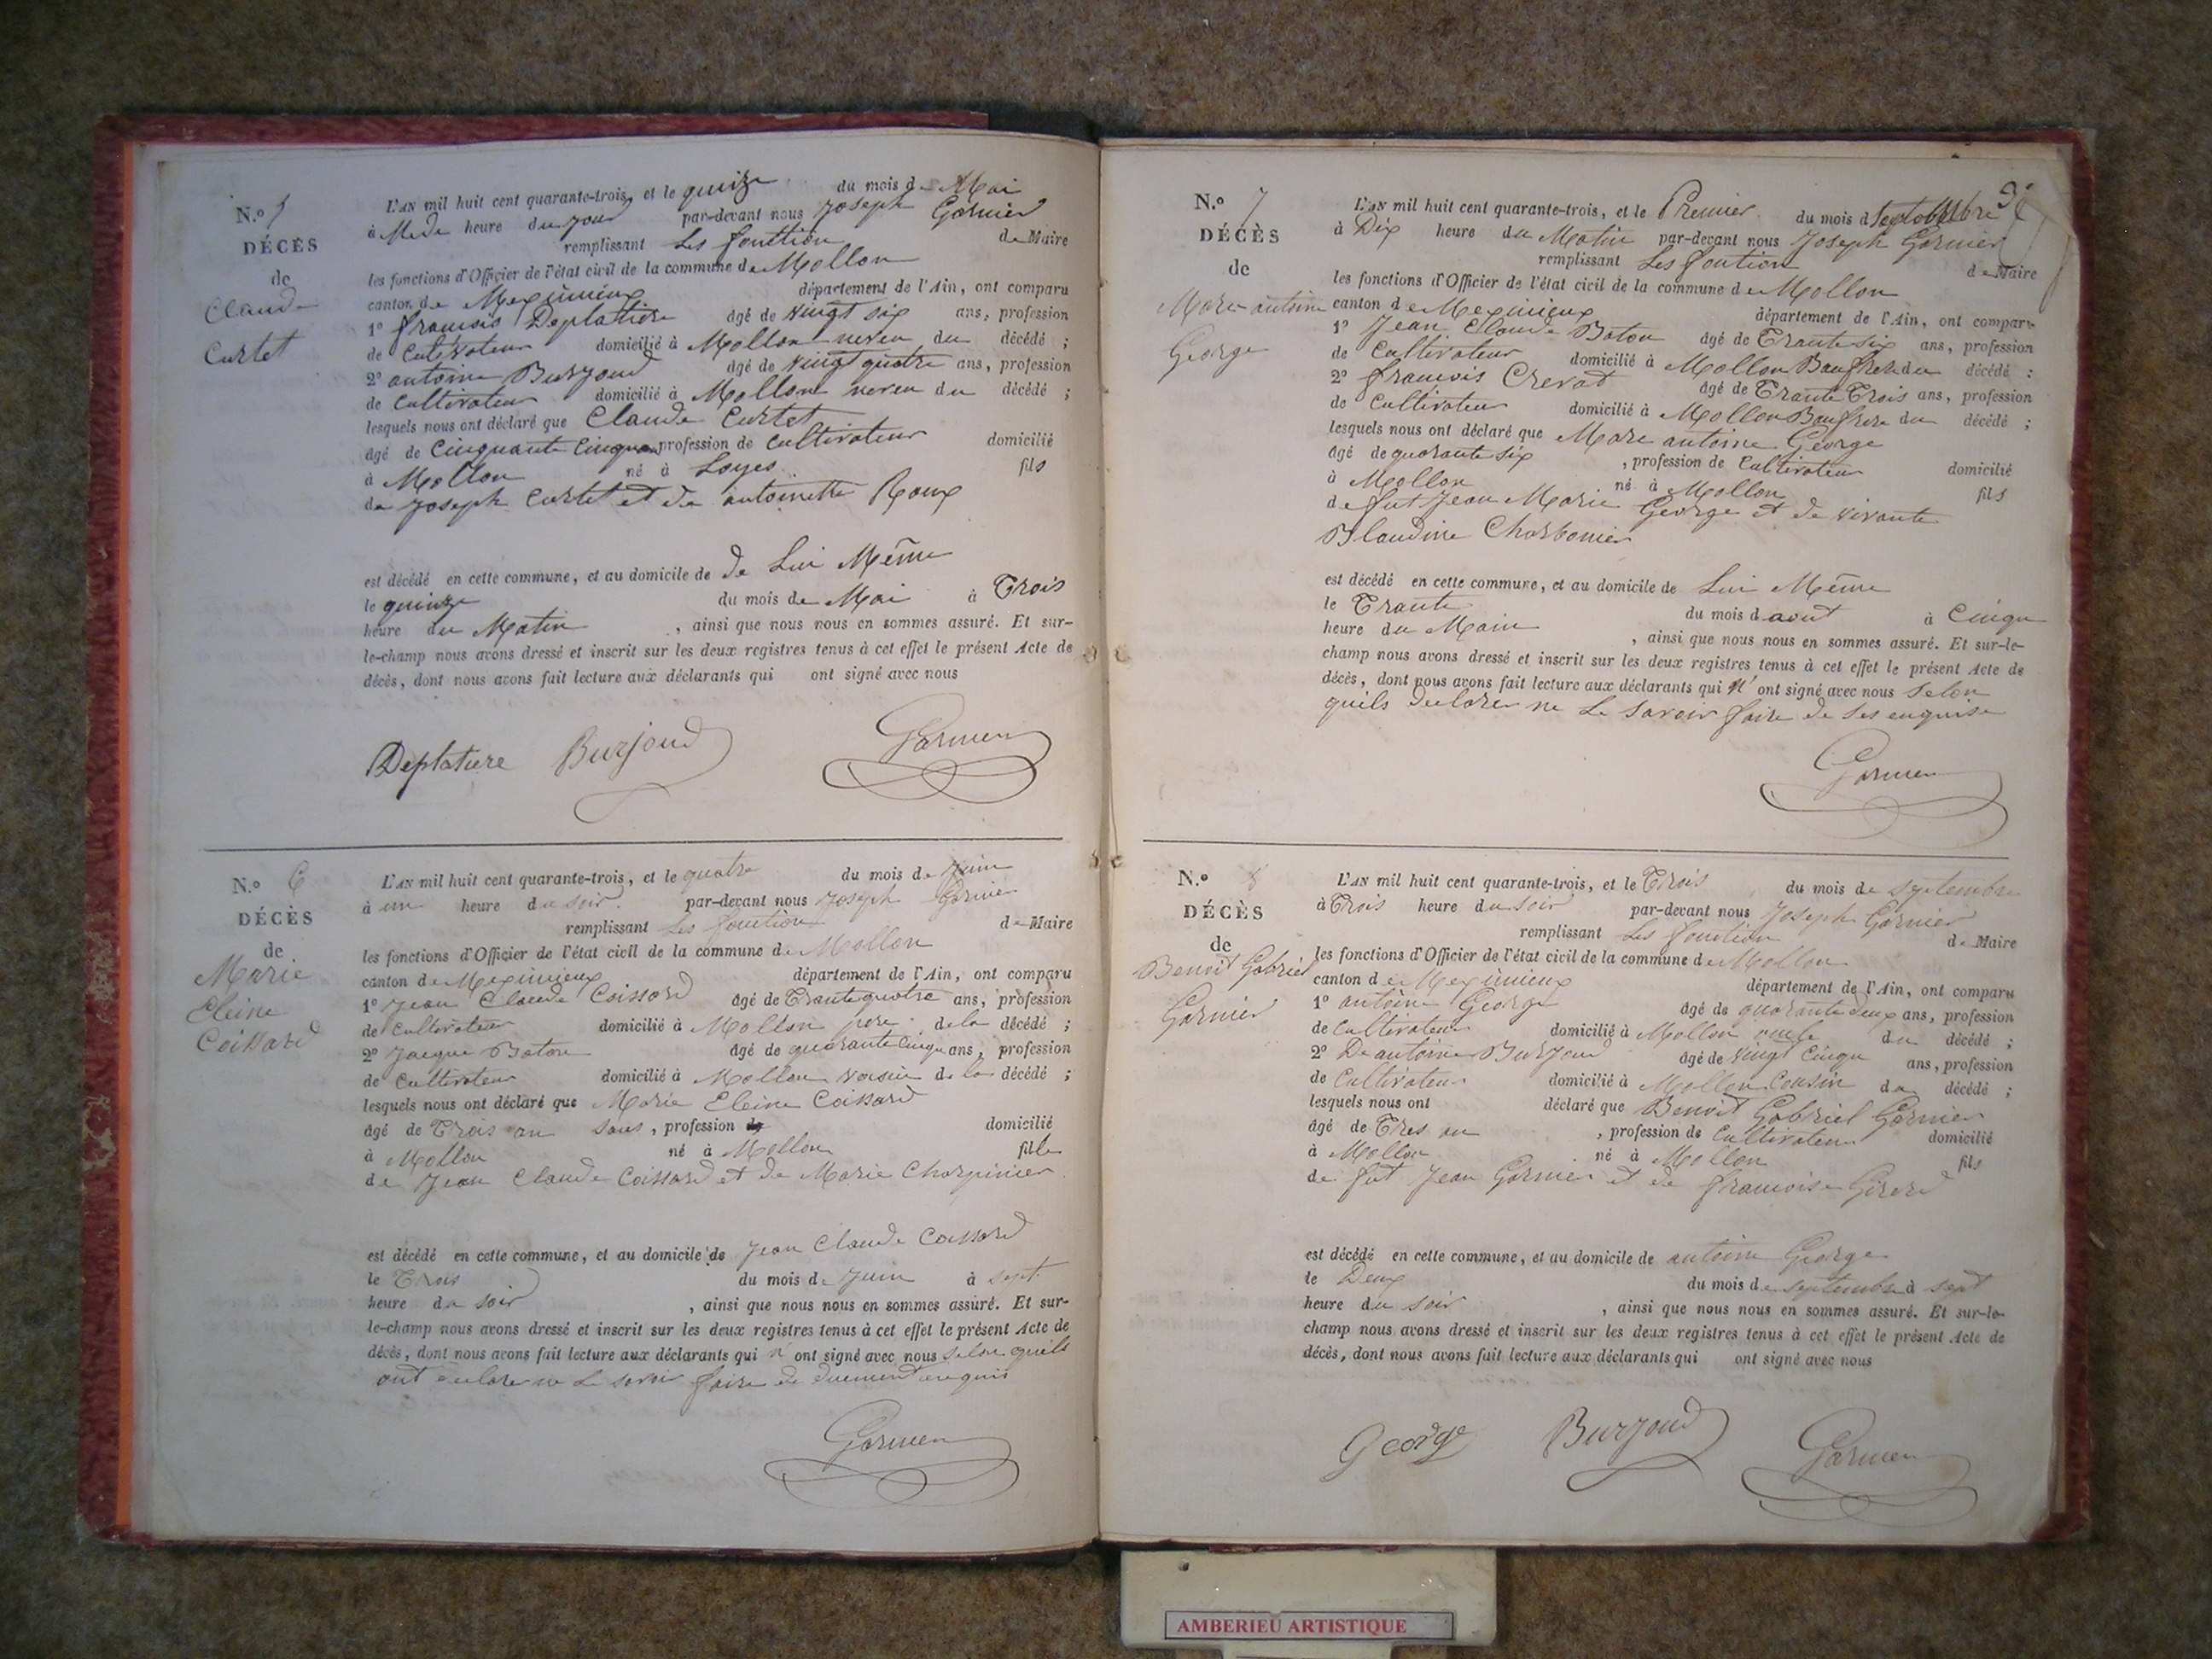 N.o 5
DÉCÈS
de
Claude
Curtet
L'AN mil huit cent quarante-trois, et le quinze du mois de Mai
à Mede heure du jour par-devant nous Joseph Garnier
remplissant Les fonttion de Maire
les fonctions d'Officier de l'état civil de la commune de Mollon
canton de Meximieux département de l'Ain, ont comparu
1o francois Deplatière âgé de vingt six ans, profession
de Cultivateur domicilié à Mollon neveu du décédé ;
2o antoine Burjoud âgé de vingt quatre ans, profession
de Cultivateur domicilié à Mollon neveu du décédé ;
lesquels nous ont déclaré que Claude Curtet
âgé de Cinquante Cinque profession de Cultivateur domicilié
à Mollon né à Loyes fils
de Joseph Curtet et de antoinette Roux
est décédé en cette commune, et au domicile de de Lui Même
le quinze du mois de Mai à Trois
heure du Matin , ainsi que nous nous en sommes assuré. Et sur-
le-champ nous avons dressé et inscrit sur les deux registres tenus à cet effet le présent Acte de
décès, dont nous avons fait lecture aux déclarants qui ont signé avec nous
Deplatiere Burjoud Garnier
N.o 6
DÉCÈS
de
Marie
Eleine
Coissard
L'AN mil huit cent quarante-trois, et le quatre du mois de Juin
à un heure du soir par-devant nous Joseph Garnier
remplissant Les fonction de Maire
les fonctions d'Officier de l'état civil de la commune de Mollon
canton de Meximieux département de l'Ain, ont comparu
1o Jean Claude Coissard âgé de Trante quatre ans, profession
de Cultivateur domicilié à Mollon pere de la décédé ;
2o Jacque Baton âgé de quarante Cinqu ans, profession
de Cultivateur domicilié à Mollon voisin de la décédé ;
lesquels nous ont déclaré que Marie Eleine Coissard
âgé de Trois an sans, profession de domicilié
à Mollon né à Mollon fille
de Jean Claude Coissard et de Marie Charpinier
est décédé en cette commune, et au domicile de Jean Claude Coissard
le Trois du mois de Juin à sept
heure du soir , ainsi que nous nous en sommes assuré. Et sur-
le-champ nous avons dressé et inscrit sur les deux registres tenus à cet effet le présent Acte de
décès, dont nous avons fait lecture aux déclarants qui n' ont signé avec nous selon quils
ont declare ne Le savoir faire de duement enquis
Garnier
N.o 7
DÉCÈS
de
Marc antoine
George
L'AN mil huit cent quarante-trois, et le Premier du mois d Septembre
à Dix heure du Matin par-devant nous Joseph Garnier
remplissant Les fontion de Maire
les fonctions d'Officier de l'état civil de la commune de Mollon
canton de Meximieux département de l'Ain, ont comparu
1o Jean Claude Baton âgé de Trante six ans, profession
de Cultivateur domicilié à Mollon Baufrere du décédé :
2o francois Crevat âgé de Trante Trois ans, profession
de Cultivateur domicilié à Mollon Baufrere du décédé ;
lesquels nous ont déclaré que Marc antoine George
âgé de quarante six , profession de Cultivateur domicilié
à Mollon né à Mollon fils
de fut Jean Marie George et de vivante
Blaudine Charbonier
est décédé en cette commune, et au domicile de Lui Même
le Trante du mois d aout à Cinqu
heure du Main , ainsi que nous nous en sommes assuré. Et sur-le-
champ nous avons dressé et inscrit sur les deux registres tenus à cet effet le présent Acte de
décès, dont nous avons fait lecture aux déclarants qui n' ont signé avec nous Selon
quils declarer ne Le Savoir faire de Ses enquise
Garnier
N.o 8
DÉCÈS
de
Benoit Gabriel
Garnier
L'AN mil huit cent quarante-trois, et le Trois du mois de septembre
à Trois heure du soir par-devant nous Joseph Garnier
remplissant Les fonction de Maire
les fonctions d'Officier de l'état civil de la commune de Mollon
canton de Meximieux département de l'Ain, ont comparu
1o antoine George âgé de quarante deux ans, profession
de Cultivateur domicilié à Mollon oncle du décédé ;
2o De antoine Burjoud âgé de vingt Cinqu ans, profession
de Cultivateur domicilié à Mollon Cousin du décédé ;
lesquels nous ont déclaré que Benoit Gabriel Garnier
âgé de Tres an , profession de Cultivateur domicilié
à Mollon né à Mollon fils
de fut Jean Garnier et de francoise Girard
est décédé en cette commune, et au domicile de antoine George
le Deux du mois de septembre à sept
heure du soir , ainsi que nous nous en sommes assuré. Et sur-le-
champ nous avons dressé et inscrit sur les deux registres tenus à cet effet le présent Acte de
décès, dont nous avons fait lecture aux déclarants qui ont signé avec nous
George Burjoud Garnier
AMBERIEU ARTISTIQUE